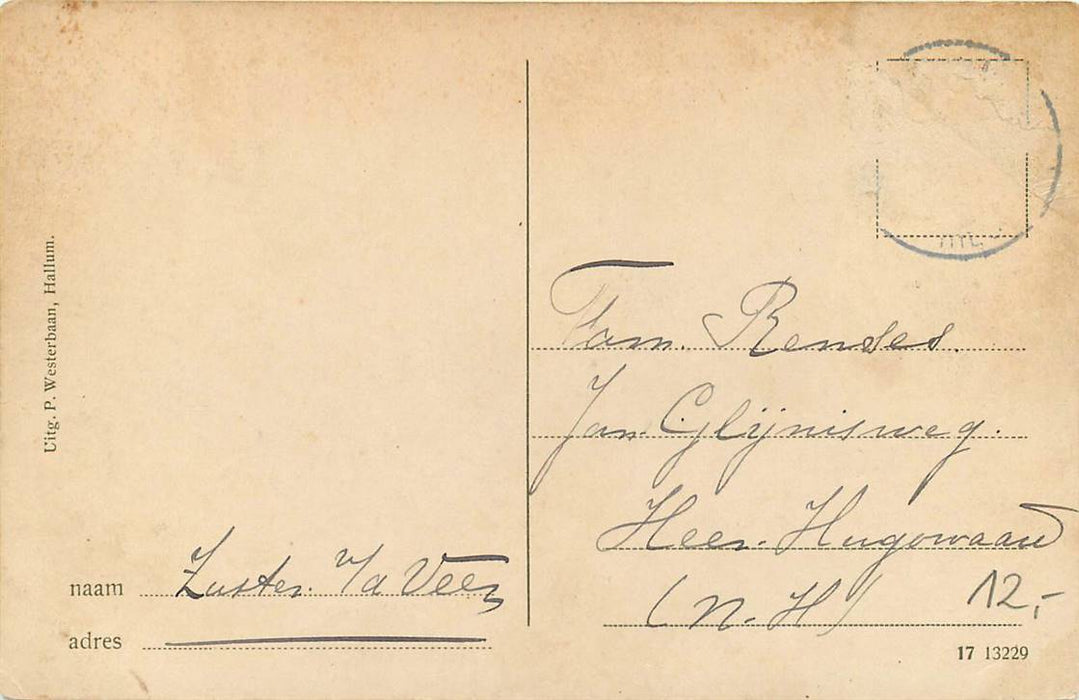 Uitg. P. Westerbaan, Hallum.
Fam. Rendes.
Jan Glijnisweg.
Heer-Hugowaard
(N.H)
12,-
naam Zuster. v/d Veen
adres
17 13229